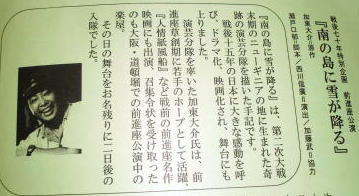 戦後七十年特別企画 前進座公演
『南の島に雪が降る』
加東大介＝原作
瀬戸口郁＝脚本／西川信廣＝演出／加藤武＝協力
『南の島に雪が降る』は、第二次大戦
末期のニューギニアの地に生まれた奇
跡の演芸分隊を描いた手記です。
戦後十五年の日本に大きな感動を呼
び、ドラマ化、映画化され、舞台にも
上りました。
演芸分隊を率いた加東大介氏は、前
進座草創期に若手のホープとして活躍。
『人情紙風船』など戦前の前進座名作
映画にも出演、召集令状を受け取った
のも大阪・道頓堀での前進座公演中の
楽屋。
その日の舞台をお名残りに二日後の
入隊でした。